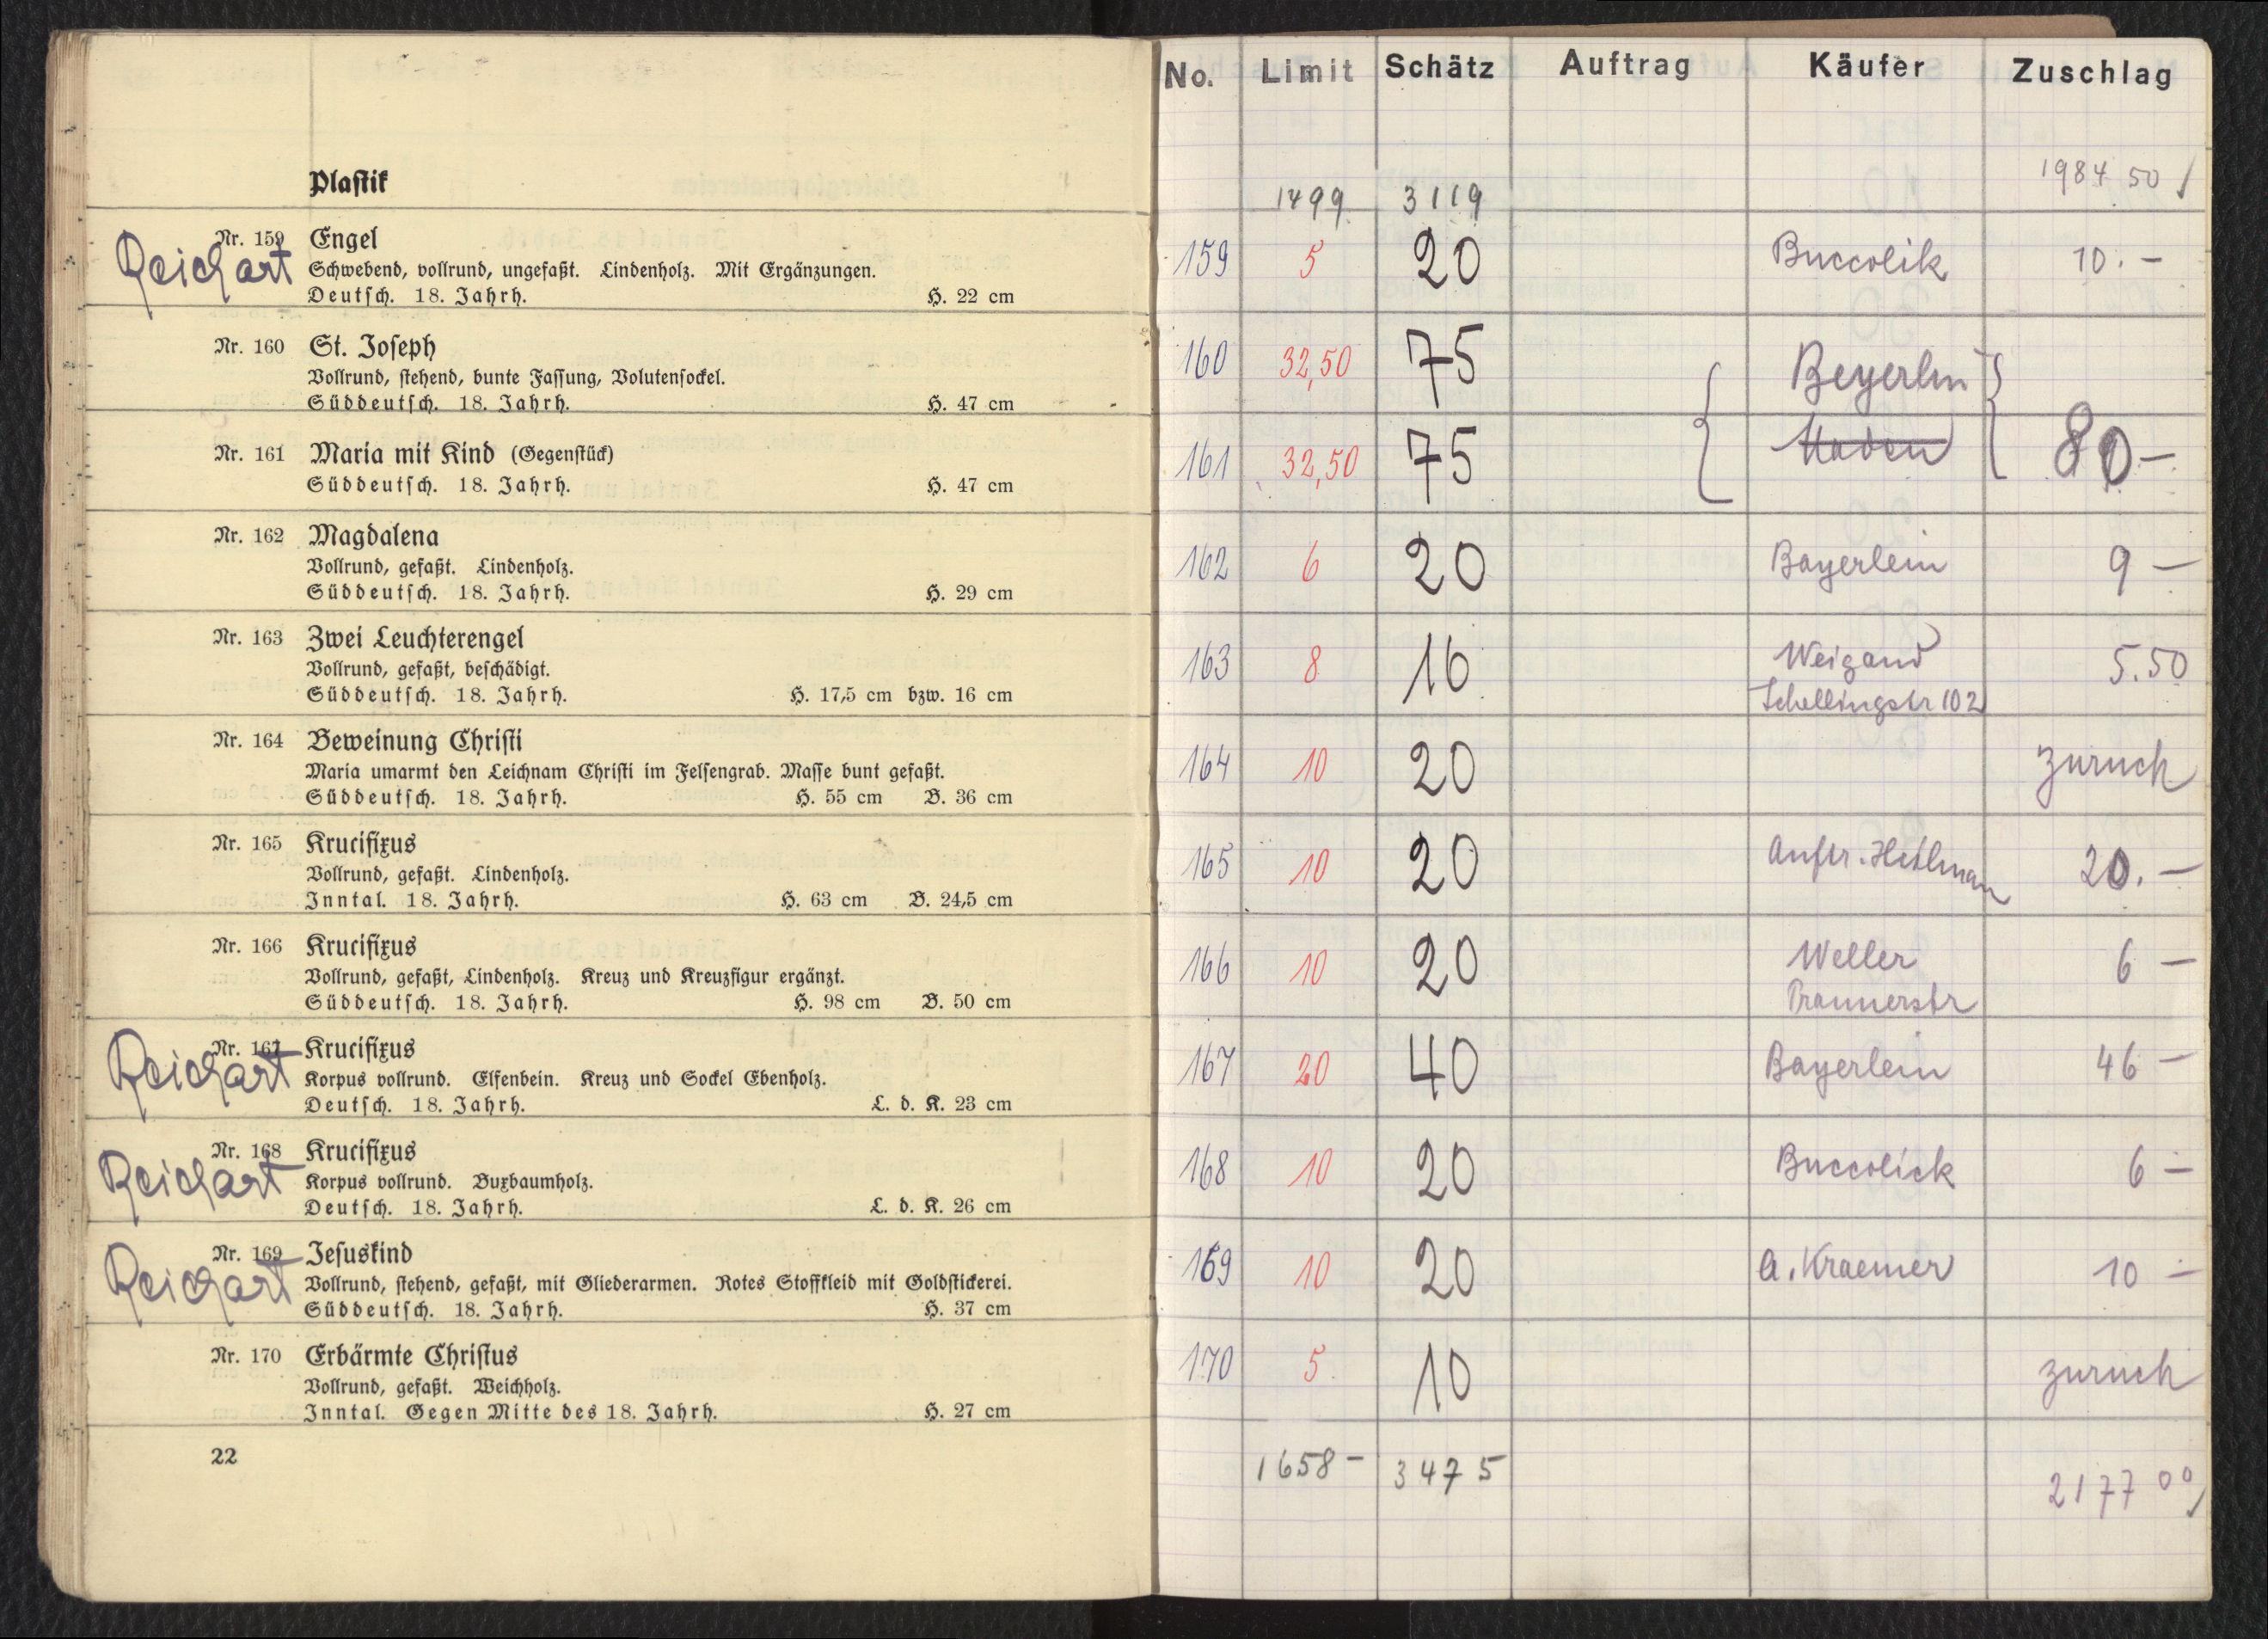 Plastik
Nr. 159 Engel
Reichart
Schwebend, vollrund, ungefaßt. Lindenholz. Mit Ergänzungen.
Deutsch. 18. Jahrh. H. 22 cm
Nr. 160 St. Joseph
Vollrund, stehend, bunte Fassung, Volutensockel.
Süddeutsch. 18. Jahrh. H. 47 cm
Nr. 161 Maria mit Kind (Gegenstück)
Süddeutsch. 18. Jahrh. H. 47 cm
Nr. 162 Magdalena
Vollrund, gefaßt. Lindenholz.
Süddeutsch. 18. Jahrh. H. 29 cm
Nr. 163 Zwei Leuchterengel
Vollrund, gefaßt, beschädigt.
Süddeutsch. 18. Jahrh. H. 17,5 cm bzw. 16 cm
Nr. 164 Beweinung Christi
Maria umarmt den Leichnam Christi im Felsengrab. Masse bunt gefaßt.
Süddeutsch. 18. Jahrh. H. 55 cm B. 36 cm
Nr. 165 Krucifixus
Vollrund, gefaßt. Lindenholz.
Inntal. 18. Jahrh. H. 63 cm B. 24,5 cm
Nr. 166 Krucifixus
Vollrund, gefaßt, Lindenholz. Kreuz und Kreuzfigur ergänzt.
Süddeutsch. 18. Jahrh. H. 98 cm B. 50 cm
Nr. 167 Krucifixus
Reichart
Korpus vollrund. Elfenbein. Kreuz und Sockel Ebenholz.
Deutsch. 18. Jahrh. L. d. K. 23 cm
Nr. 168 Krucifixus
Reichart
Korpus vollrund. Buxbaumholz.
Deutsch. 18. Jahrh. L. d. K. 26 cm
Nr. 169 Jesuskind
Reichart
Vollrund, stehend, gefaßt, mit Gliederarmen. Rotes Stoffkleid mit Goldstickerei.
Süddeutsch. 18. Jahrh. H. 37 cm
Nr. 170 Erbärmte Christus
Vollrund, gefaßt. Weichholz.
Inntal. Gegen Mitte des 18. Jahrh. H. 27 cm
22
No. Limit Schätz Auftrag Käufer Zuschlag
1499 3119 1984 50
159 5 20 Buccolik 10.-
160 32,50 75 Beyerlin
161 32,50 75 80-
162 6 20 Bayerlein 9 -
163 8 16 Weigand 5.50
Schellingstr 102
164 10 20 zuruck
165 10 20 Auftr. 20.-
166 10 20 Weller 6 -
Prannerstr
167 20 40 Bayerlein 46 -
168 10 20 Buccolick 6 -
169 10 20 A. Kraemer 10 -
170 5 10 zuruck
1658- 3475 2177 00